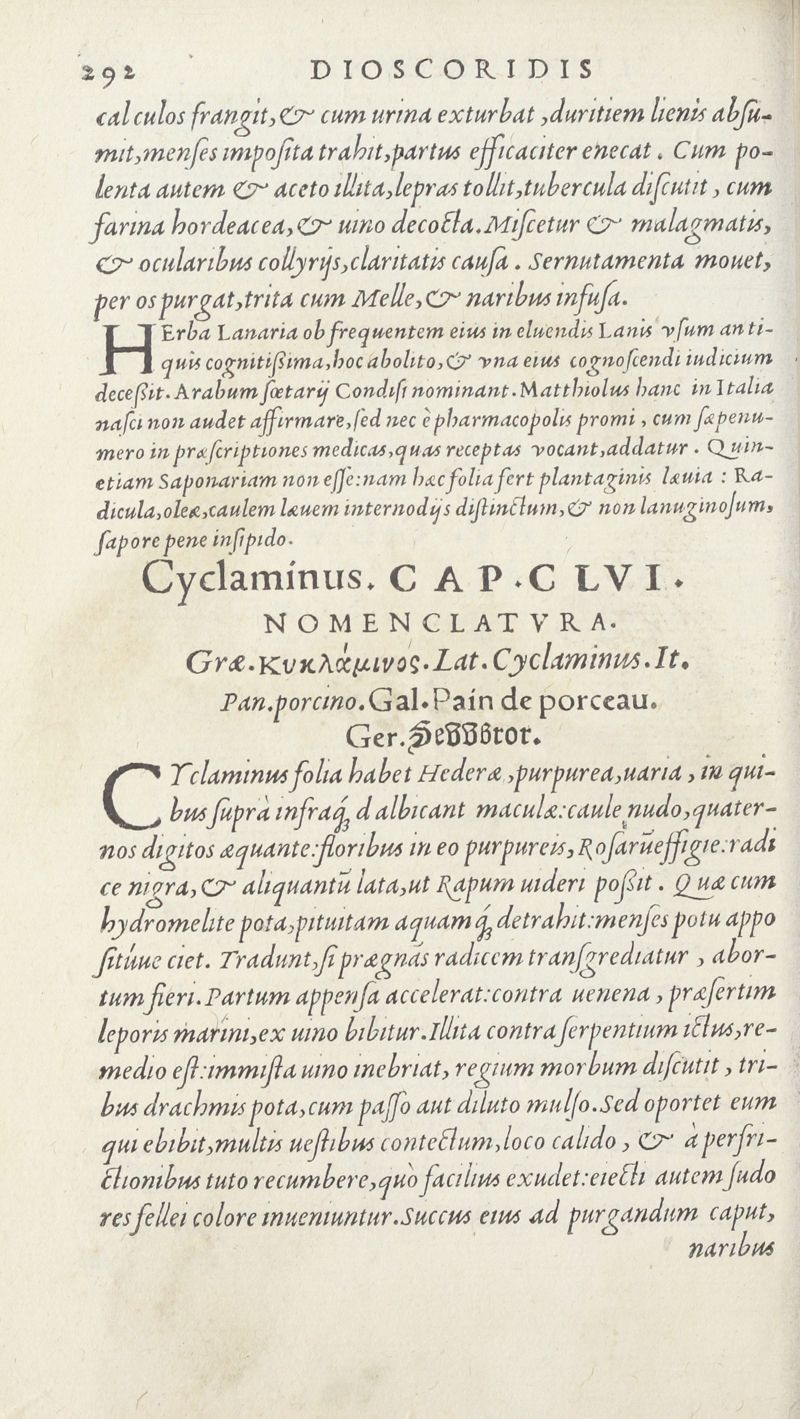 292 DIOSCORIDIS
calculos frangit, & cum urina exturbat, duritiem lienis absu-
mit, menses imposita trahit, partus efficaciter enecat. Cum po-
lenta autem & aceto illita, lepras tollit, tubercula discutit, cum
farina hordeacea, & uino decocta. Miscetur & malagmatis,
& ocularibus collyrijs, claritatis causa. Sernutamenta mouet,
per os purgat, trita cum Melle, & naribus infusa.
HErba Lanaria ob frequentem eius in eluendis Lanis vsum anti-
quis cognitißima, hoc abolito, & vna eius cognoscendi iudicium
deceßit. Arabum sœtarij Condisi nominant. Matthiolus hanc in Italia
nasci non audet affirmare, sed nec è pharmacopolis promi, cum sæpenu-
mero in præscriptiones medicas, quas receptas vocant, addatur. Quin-
etiam Saponariam non esse: nam hæc folia fert plantaginis læuia: Ra-
dicula, oleæ, caulem læuem internodijs distinctum, & non lanuginosum,
sapore pene insipido.
Cyclaminus. CAP. CLVI.
NOMENCLATVRA.
Græ. Κυκλάμινος. Lat. Cyclaminus. It.
Pan. porcino. Gal. Pain de porceau.
Ger.
CYclaminus folia habet Hederæ, purpurea, uaria, in qui-
bus suprà infraq́; d albicant maculæ: caule nudo, quater-
nos digitos æquante: floribus in eo purpureis, Rosarūeffigie: radi
ce nigra, & aliquantū lata, ut Rapum uideri poßit. Quæ cum
hydromelite pota, pituitam aquamq́; detrahit: menses potu appo
sitúue ciet. Tradunt, si prægnās radicem transgrediatur, abor-
tum fieri. Partum appensa accelerat: contra uenena, præsertim
leporis marini, ex uino bibitur. Illita contra serpentium ictus, re-
medio est: immista uino inebriat, regium morbum discutit, tri-
bus drachmis pota, cum passo aut diluto mulso. Sed oportet eum
qui ebibit, multis uestibus contectum, loco calido, & à perfri-
ctionibus tuto recumbere, quò facilius exudet: eiecti autem sudo
res fellei colore inueniuntur. Succus eius ad purgandum caput,
naribus